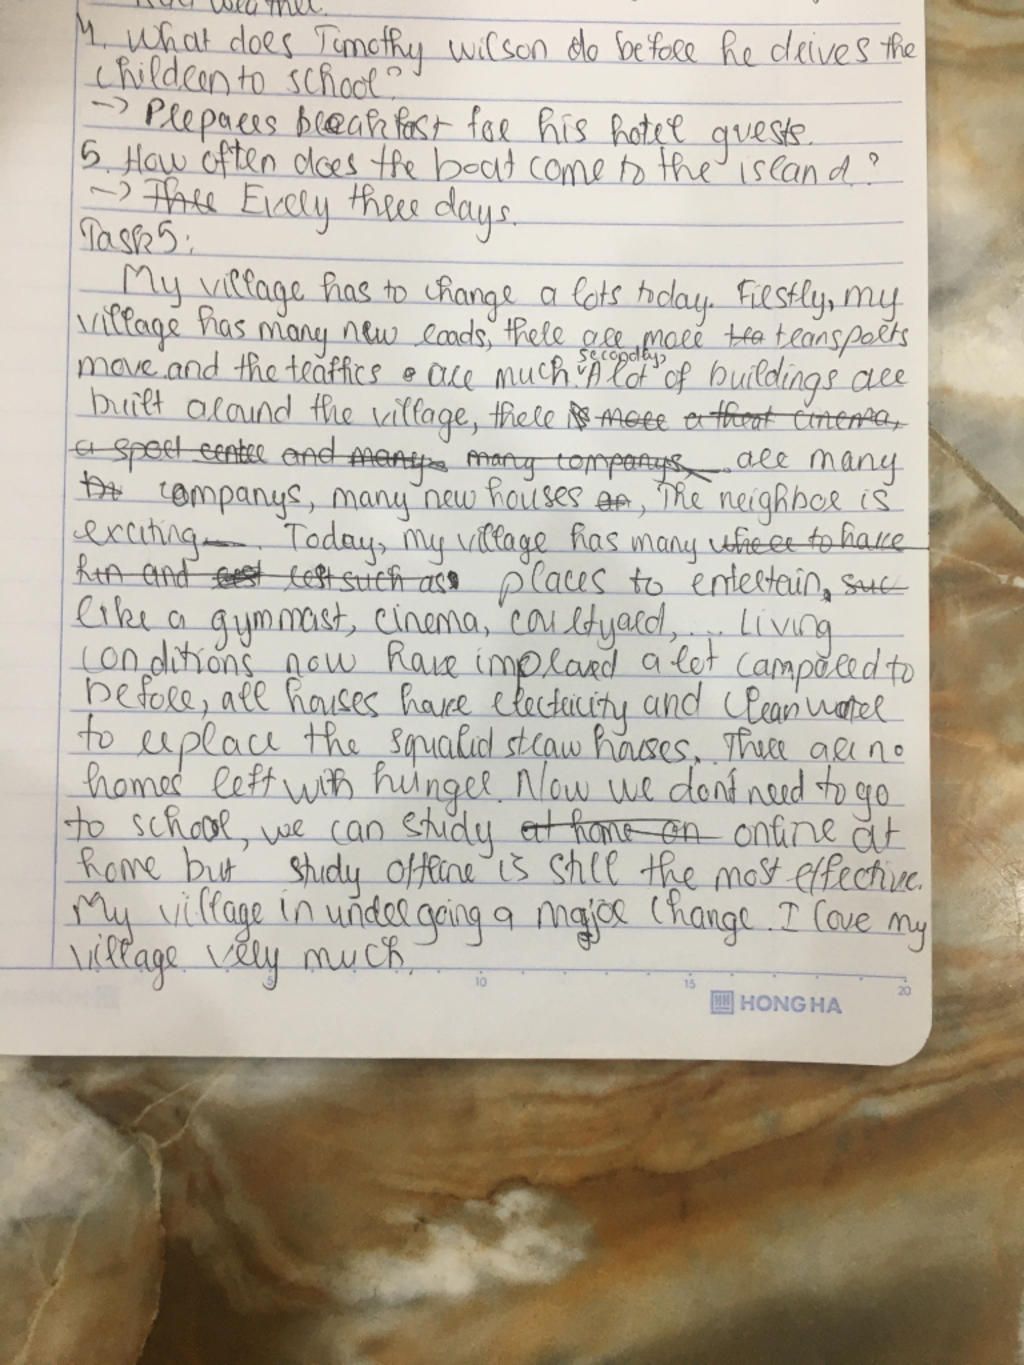 4. What does Timothy wilson do before he drives the
children to school?
-> Prepares breakfast for his hotel guests.
5. How often does the boat come to the island?
-> Three Every three days.
Task 5:
My village has to change a lots today. Firstly, my
village has many new roads, there are more tra transports
move and the traffics are much. secondly, A lot of buildings are
built around the village, there is more a theat cinema,
a sport centre and many many companys are many
companys, many new houses an, The neighbor is
exciting. Today, my village has many where to have
fun and rest such as places to entertain, suc
like a gymmast, cinema, courtyard,... Living
conditions now have improved a lot compared to
before, all houses have electricity and clean water
to replace the squalid straw houses. There are no
homes left with hunger. Now we don't need to go
to school, we can study at home on online at
home but study offline is still the most effective.
My village in undergoing a major change. I love my
village very much.
5 10 15 20
HONG HA